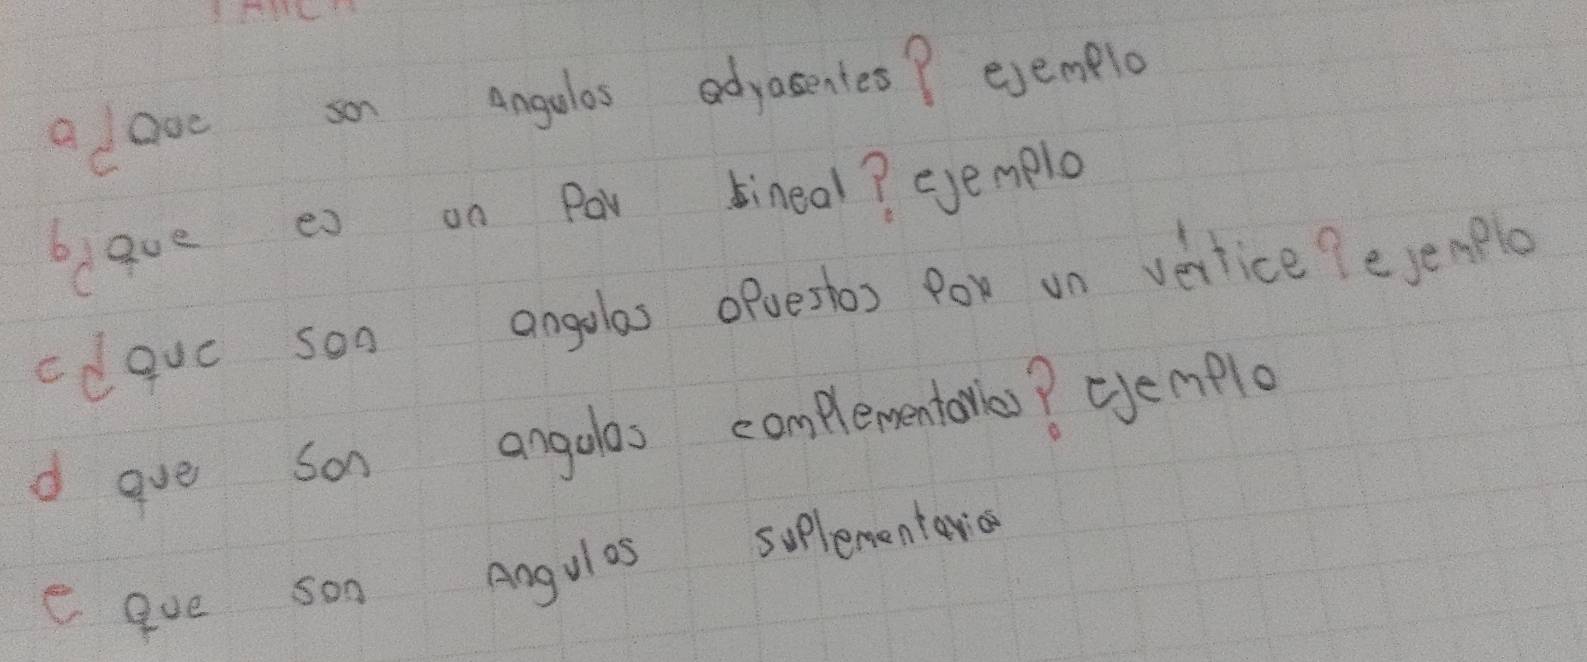 a ¿Que son Angulos adyasentes? ejemplo
b ¿que es un Par lineal? ejemplo
c ¿que son angulos opuestos Por un vértice? ejemplo
d que son angulos complementarios? ejemplo
e que son Angulos suplementarios